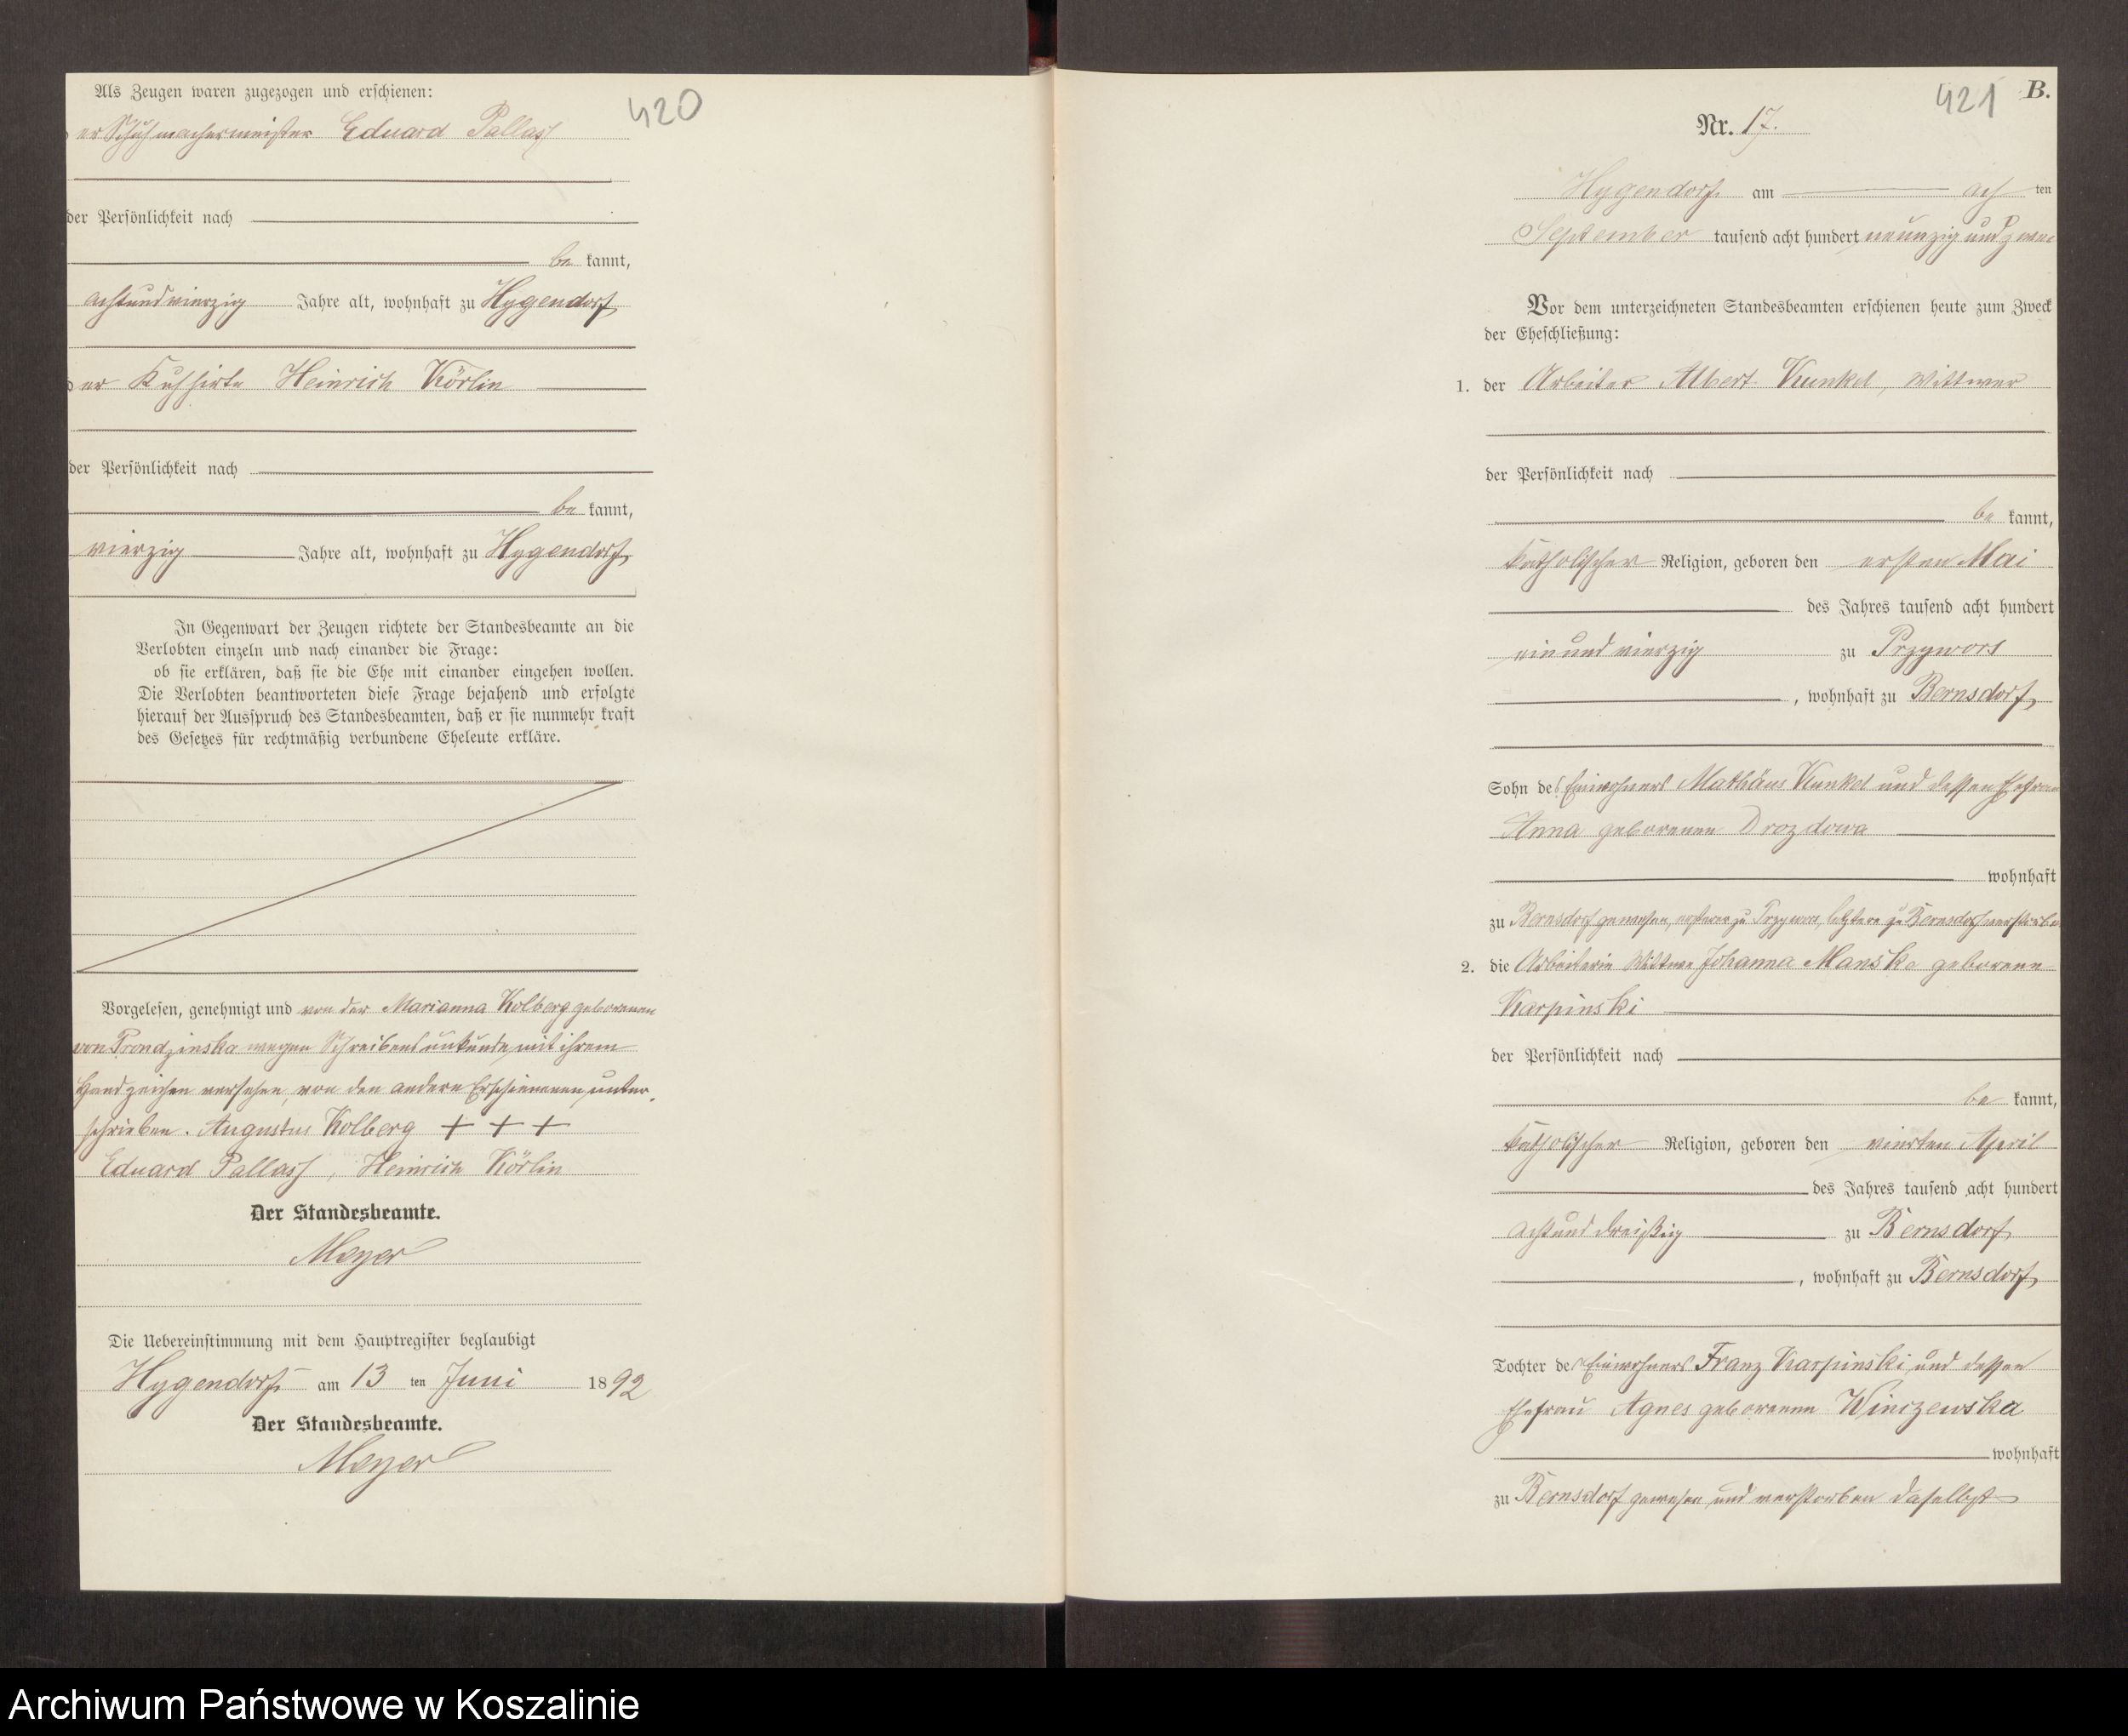 Als Zeugen waren zugezogen und erschienen:
420
er Schuhmachermeister Eduard Pallas
der Persönlichkeit nach
be kannt,
achtundvierzig Jahre alt, wohnhaft zu Hygendorf
er Kuhhirte Heinrich Körlin
der Persönlichkeit nach
be kannt,
vierzig Jahre alt, wohnhaft zu Hygendorf
In Gegenwart der Zeugen richtete der Standesbeamte an die
Verlobten einzeln und nach einander die Frage:
ob sie erklären, daß sie die Ehe mit einander eingehen wollen.
Die Verlobten beantworteten diese Frage bejahend und erfolgte
hierauf der Ausspruch des Standesbeamten, daß er sie nunmehr kraft
des Gesetzes für rechtmäßig verbundene Eheleute erkläre.
Vorgelesen, genehmigt und von der Marianna Kolberg geborenen
von Prondzinska wegen Schreibensunkunde mit ihrem
Handzeichen versehen, von den andern Erschienenen unter-
schrieben. Augustus Kolberg + + +
Eduard Pallas, Heinrich Körlin
Der Standesbeamte.
Meyer
Die Uebereinstimmung mit dem Hauptregister beglaubigt
Hygendorf am 13 ten Juni 1892
Der Standesbeamte.
Meyer
421 B.
Nr. 17.
Hygendorf am ach ten
September tausend acht hundert neunzig und zwei
Vor dem unterzeichneten Standesbeamten erschienen heute zum Zweck
der Eheschließung:
1. der Arbeiter Albert Kunkel, Wittwer
der Persönlichkeit nach
be kannt,
katholischer Religion, geboren den ersten Mai
des Jahres tausend acht hundert
ein und vierzig zu Przywors
, wohnhaft zu Bernsdorf
Sohn des Einwohners Mathäus Kunkel und dessen Ehefrau
Anna geborenen Drozdowa
wohnhaft
zu Bernsdorf gewesen, ersterer zu Przywors, letztere zu Bernsdorf verstorben
2. die Arbeiterin Wittwe Johanna Manske geborene
Karpinski
der Persönlichkeit nach
be kannt,
katholischer Religion, geboren den vierten April
des Jahres tausend acht hundert
acht und dreißig zu Bernsdorf
, wohnhaft zu Bernsdorf
Tochter des Einwohners Franz Karpinski und dessen
Ehefrau Agnes geborenen Winczewska
wohnhaft
zu Bernsdorf gewesen und verstorben daselbst
Archiwum Państwowe w Koszalinie